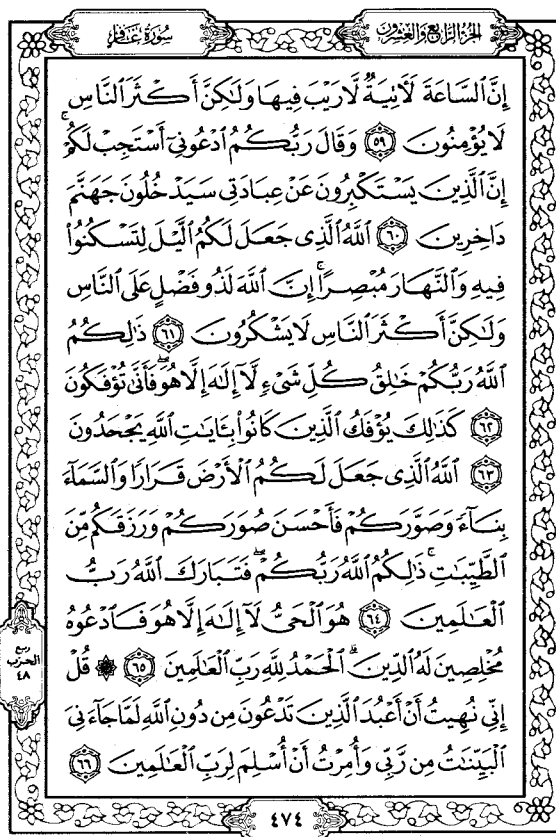 الجزء الرابع والعشرون
سورة غافر
إِنَّ ٱلسَّاعَةَ لَأٓتِيَةٌ لَّا رَيۡبَ فِيهَا وَلَٰكِنَّ أَكۡثَرَ ٱلنَّاسِ
لَا يُؤۡمِنُونَ ٥٩ وَقَالَ رَبُّكُمُ ٱدۡعُونِيٓ أَسۡتَجِبۡ لَكُمۡۚ
إِنَّ ٱلَّذِينَ يَسۡتَكۡبِرُونَ عَنۡ عِبَادَتِي سَيَدۡخُلُونَ جَهَنَّمَ
دَاخِرِينَ ٦٠ ٱللَّهُ ٱلَّذِي جَعَلَ لَكُمُ ٱلَّيۡلَ لِتَسۡكُنُواْ
فِيهِ وَٱلنَّهَارَ مُبۡصِرًاۚ إِنَّ ٱللَّهَ لَذُو فَضۡلٍ عَلَى ٱلنَّاسِ
وَلَٰكِنَّ أَكۡثَرَ ٱلنَّاسِ لَا يَشۡكُرُونَ ٦١ ذَٰلِكُمُ
ٱللَّهُ رَبُّكُمۡ خَٰلِقُ كُلِّ شَيۡءٖ لَّآ إِلَٰهَ إِلَّا هُوَۖ فَأَنَّىٰ تُؤۡفَكُونَ
٦٢ كَذَٰلِكَ يُؤۡفَكُ ٱلَّذِينَ كَانُواْ بِـَٔايَٰتِ ٱللَّهِ يَجۡحَدُونَ
٦٣ ٱللَّهُ ٱلَّذِي جَعَلَ لَكُمُ ٱلۡأَرۡضَ قَرَارًا وَٱلسَّمَآءَ
بِنَآءً وَصَوَّرَكُمۡ فَأَحۡسَنَ صُوَرَكُمۡ وَرَزَقَكُم مِّنَ
ٱلطَّيِّبَٰتِۚ ذَٰلِكُمُ ٱللَّهُ رَبُّكُمۡۖ فَتَبَارَكَ ٱللَّهُ رَبُّ
ٱلۡعَٰلَمِينَ ٦٤ هُوَ ٱلۡحَيُّ لَآ إِلَٰهَ إِلَّا هُوَ فَٱدۡعُوهُ
مُخۡلِصِينَ لَهُ ٱلدِّينَۗ ٱلۡحَمۡدُ لِلَّهِ رَبِّ ٱلۡعَٰلَمِينَ ٦٥ ۞ قُلۡ
إِنِّي نُهِيتُ أَنۡ أَعۡبُدَ ٱلَّذِينَ تَدۡعُونَ مِن دُونِ ٱللَّهِ لَمَّا جَآءَنِيَ
ٱلۡبَيِّنَٰتُ مِن رَّبِّي وَأُمِرۡتُ أَنۡ أُسۡلِمَ لِرَبِّ ٱلۡعَٰلَمِينَ ٦٦
ربع
الحزب
٤٨
٤٧٤